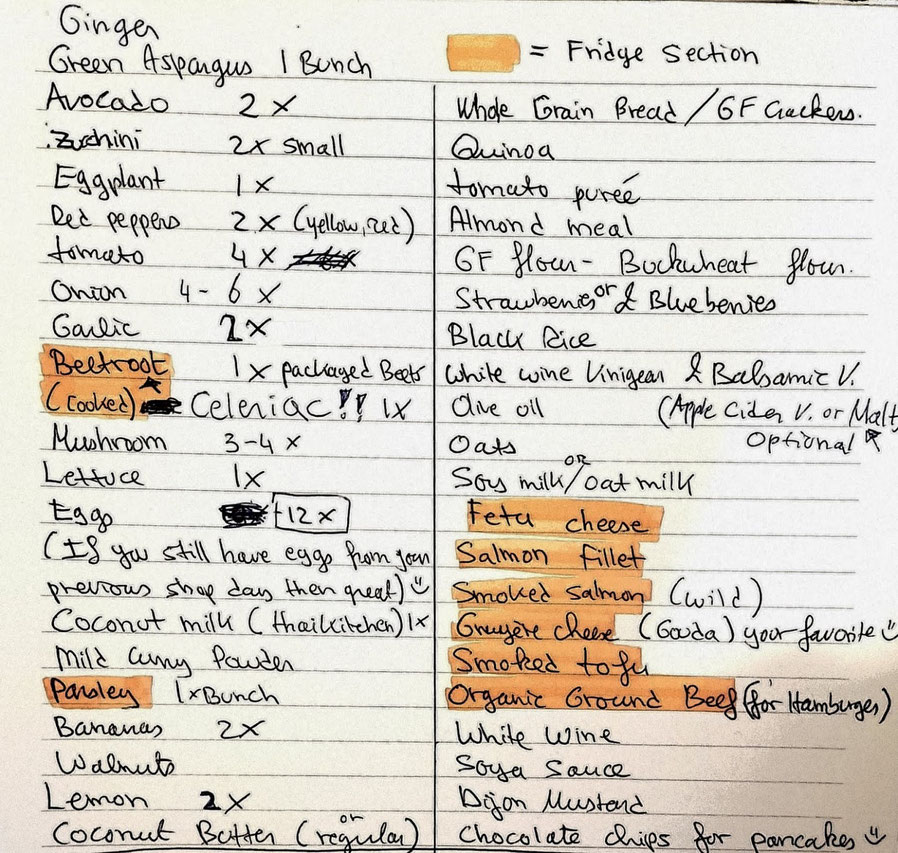 Ginger
Green Aspargus 1 Bunch
Avocado 2x
Zucchini 2x small
Eggplant 1x
Red peppers 2x (yellow, red)
tomato 4x
Onion 4-6x
Garlic 2x
Beetroot 1x packaged Beets
(cooked) Celeriac!! 1x
Mushroom 3-4x
Lettuce 1x
Eggs 12x
(If you still have eggs from your
previous shop day then great)
Coconut milk (thaikitchen) 1x
Mild Curry Powder
Parsley 1xBunch
Bananas 2x
Walnuts
Lemon 2x
Coconut Butter (or regular)
= Fridge Section
Whole Grain Bread / GF Crackers.
Quinoa
tomato pureé
Almond meal
GF flour - Buckwheat flour.
Strawberries or & Blueberries
Black Rice
White wine Vinigear & Balsamic V.
Olive oil (Apple Cider V. or Malt
Optional
Oats
Soy milk / OR oat milk
Feta cheese
Salmon fillet
Smoked salmon (wild)
Gruyère cheese (Gouda) your favorite
Smoked tofu
Organic Ground Beef (for Hamburger)
White Wine
Soya Sauce
Dijon Mustard
Chocolate chips for pancakes